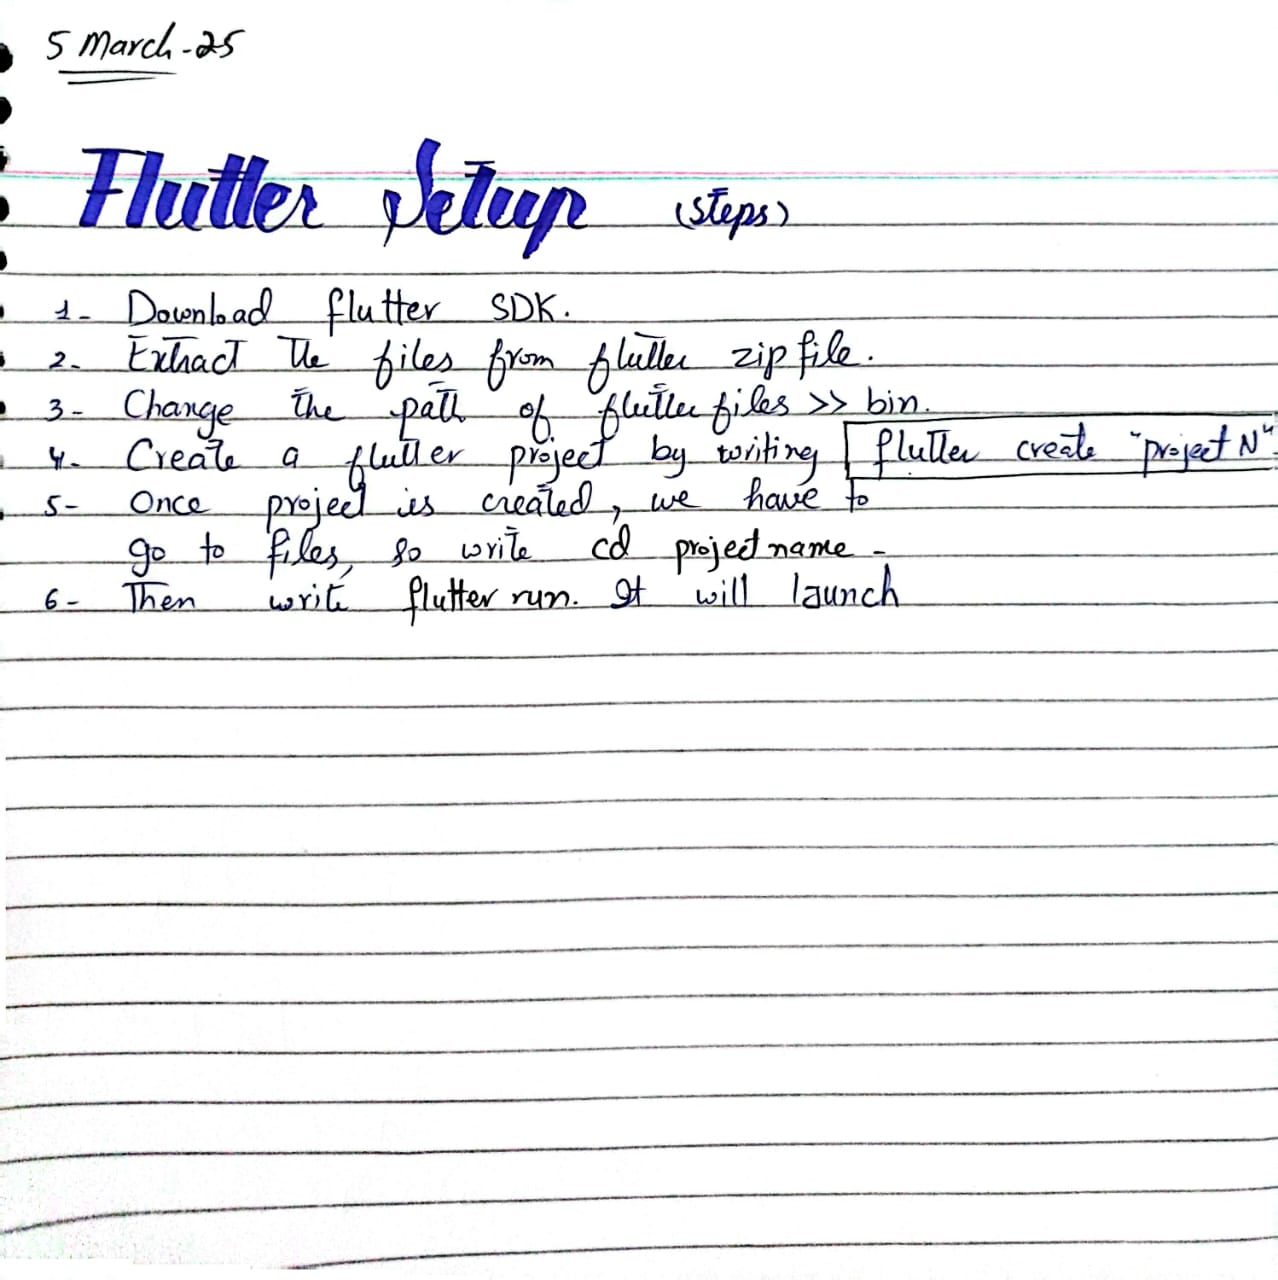 5 March-25
Flutter Setup (steps)
1- Download flutter SDK.
2- Extract the files from flutter zip file.
3- Change the path of flutter files >> bin.
4- Create a flutter project by writing flutter create "project N"
5- Once project is created, we have to
go to files, so write cd project name -
6- Then write flutter run. It will launch